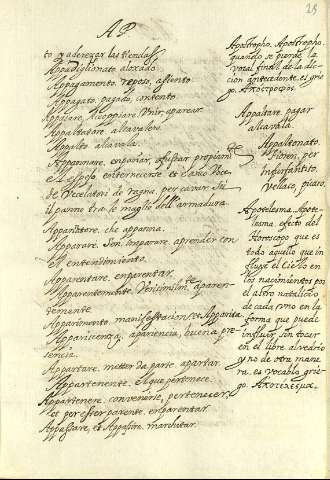 AP
25
to o aderezar las tiendas
Appadiglionato aloxado
Appagamento reposo, assiento
Appagato, pagado, contento
Appaiare, Accoppiare, Unir, aparear
Appaltadore alcavalero
Appalto alcavala.
Appannare, empañar, offuscar
propiamente
de Ucelatori de ragna, per cavar su
il panno tra le maglie dell'armadura
Appannatore, che appanna
Apparare, Imparare aprender con
el entendimiento.
Apparentare, emparentar.
Apparentemente, Verisimilmte aparen-
temente
Apparimento manifestacion, et Apparita
Appariscenza, apariencia, buena pre-
sencia.
Appartare, metter da parte, apartar
Appartenente, el que pertenece
Appartenere, convenirse, pertenecer,
et por esser parente, emparentar
Appassare, et Appassire, marchitar.
Apostropho, Apostropho,
quando se pierde la
vocal final de la dic-
cion antecedente, es grie-
go. Αποςτροφος
Appaltare pagar
alcavala.
Appaltonato
Vellaco, picaro,
Apotelesma, Apote-
lesma, efeto del
Horoscopo que es
todo aquello que in-
fluye el Cielo en
los nacimientos por
el astro natalicio
de cada uno en la
forma que puede
influyr, sin tocar
en el libre alvedrio
y no de otra mane-
ra, es vocablo grie-
go. Αποτελεςμα.